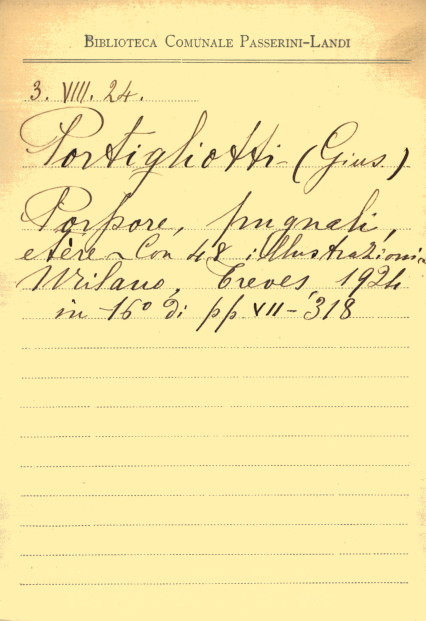 BIBLIOTECA COMUNALE PASSERINI-LANDI
3. VIII. 24.
Portigliotti (Gius.)
Porpore, pugnali,
etère ~ Con 48 illustrazioni ~
Milano, Treves 1924
in 16° di pp VII-318